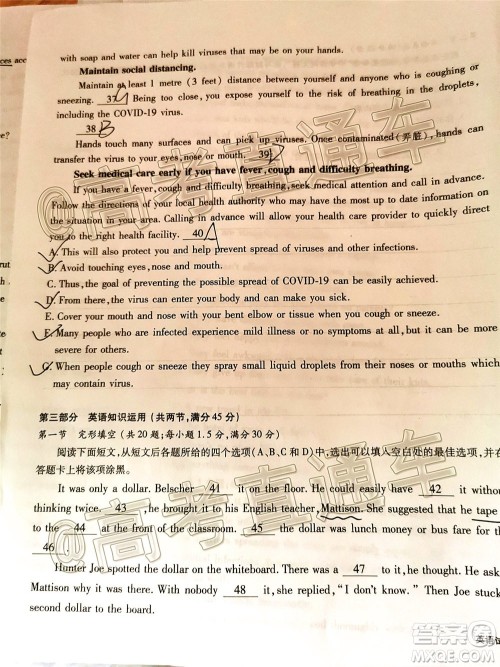 with soap and water can help kill viruses that may be on your hands.
Maintain social distancing.
Maintain at least 1 metre (3 feet) distance between yourself and anyone who is coughing or
sneezing. 37 G Being too close, you expose yourself to the risk of breathing in the droplets,
including the COVID-19 virus.
38 B
Hands touch many surfaces and can pick up viruses. Once contaminated (弄脏), hands can
transfer the virus to your eyes, nose or mouth. 39 D
Seek medical care early if you have fever, cough and difficulty breathing.
If you have a fever, cough and difficulty breathing, seek medical attention and call in advance.
Follow the directions of your local health authority who may have most up to date information on
the situation in your area. Calling in advance will allow your health care provider to quickly direct
you to the right health facility. 40 A
A. This will also protect you and help prevent spread of viruses and other infections.
B. Avoid touching eyes, nose and mouth.
C. Thus, the goal of preventing the possible spread of COVID-19 can be easily achieved.
D. From there, the virus can enter your body and can make you sick.
E. Cover your mouth and nose with your bent elbow or tissue when you cough or sneeze.
F. Many people who are infected experience mild illness or no symptoms at all, but it can be more
severe for others.
G. When people cough or sneeze they spray small liquid droplets from their noses or mouths which
may contain virus.
第三部分 英语知识运用(共两节,满分45分)
第一节 完形填空(共20题;每小题1.5分,满分30分)
阅读下面短文,从短文后各题所给的四个选项(A、B、C和D)中,选出可以填入空白处的最佳选项,并在
答题卡上将该项涂黑。
It was only a dollar. Belscher 41 it on the floor. He could easily have 42 it without
thinking twice. 43 , he brought it to his English teacher, Mattison. She suggested that he tape
the 44 at the front of the classroom. 45 the dollar was lunch money or bus fare for the
46 .
Hunter Joe spotted the dollar on the whiteboard. There was a 47 to it, he thought. He
Mattison why it was there. With nobody 48 it, she replied, "I don't know." Then Joe stuck
second dollar to the board.
英语
高考直通车
高考直通车
答案圈
MXQE.COM